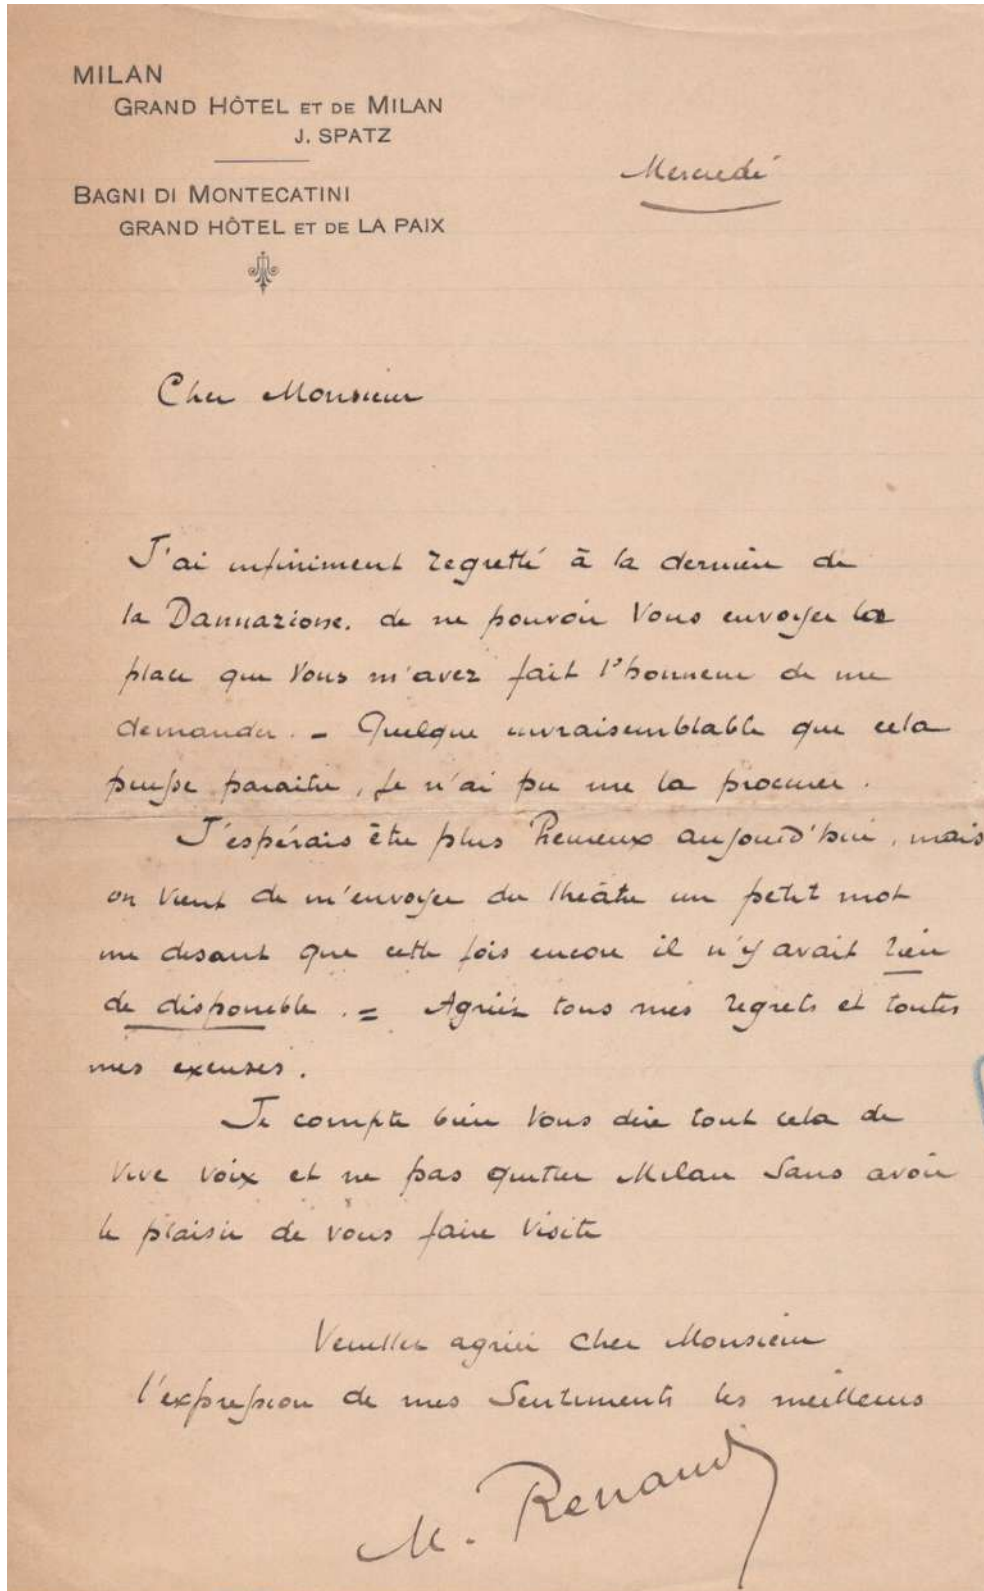 MILAN
GRAND HÔTEL ET DE MILAN
J. SPATZ
BAGNI DI MONTECATINI
GRAND HÔTEL ET DE LA PAIX
Mercredi
Cher Monsieur
J'ai infiniment regretté à la dernière de
la Dannazione. de ne pouvoir Vous envoyer la
place que Vous m'avez fait l'honneur de me
demander. - Quelque invraisemblable que cela
puisse paraître, je n'ai pu me la procurer.
J'espérais être plus heureux aujourd'hui, mais
on vient de m'envoyer du théâtre un petit mot
me disant que cette fois encore il n'y avait rien
de disponible. = Agréez tous mes regrets et toutes
mes excuses.
Je compte bien Vous dire tout cela de
vive voix et ne pas quitter Milan sans avoir
le plaisir de vous faire visite
Veuillez agréer Cher Monsieur
l'expression de mes Sentiments les meilleurs
M. Renaud